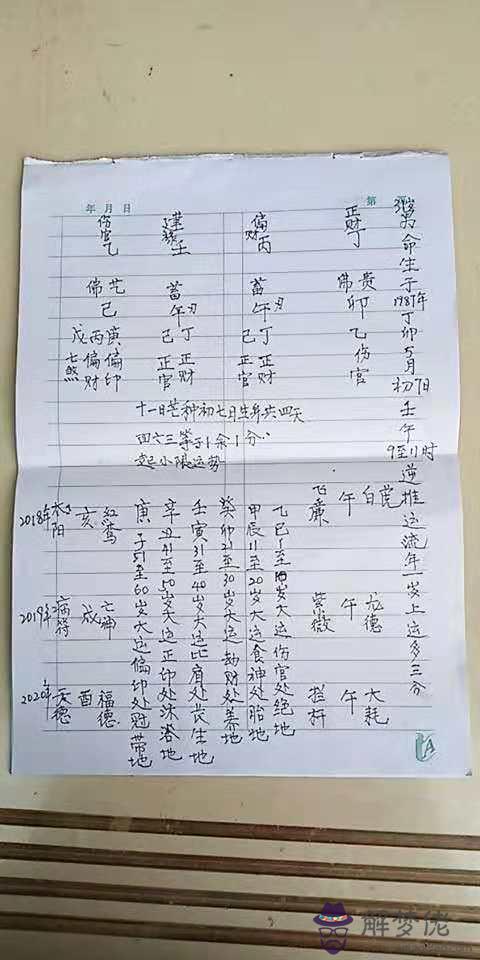 年 月 日
第
命生于1987年丁卯5月初7日壬午9至11时逆推运流年一岁上运多三分
正财丁
贵
佛
卯
乙伤官
偏财
丙
蓄
午
刃
丁正财
己正官
壬
蓄
午
刃
丁正财
己正官
伤官
乙
艺
佛
己
庚偏印
丙偏财
戊七煞
十一日芒种初七日生年共四天
四六三等于1余1分
起小限运势
白
午
飞廉
龙德
午
紫微
大耗
午
拦杆
乙巳1至10岁大运伤官处绝地
甲辰11至20岁大运食神处胎地
癸卯21至30岁大运劫财处养地
壬寅31至40岁大运比肩处长生地
辛丑41至50岁大运正印处沐浴地
庚子51至60岁大运偏印处冠带地
红鸾
亥
2018年太阳
亡神
戌
2019年病符
福德
酉
2020年天德
解梦佬